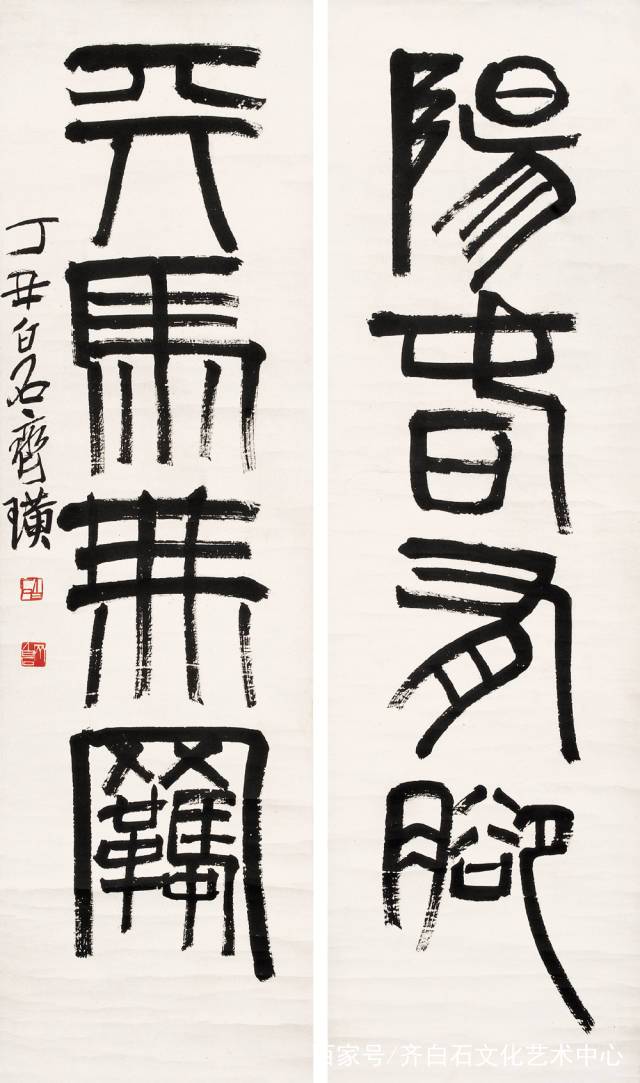 陽春有腳
天馬無羈
丁丑白石齊璜
百家号/齐白石文化艺术中心